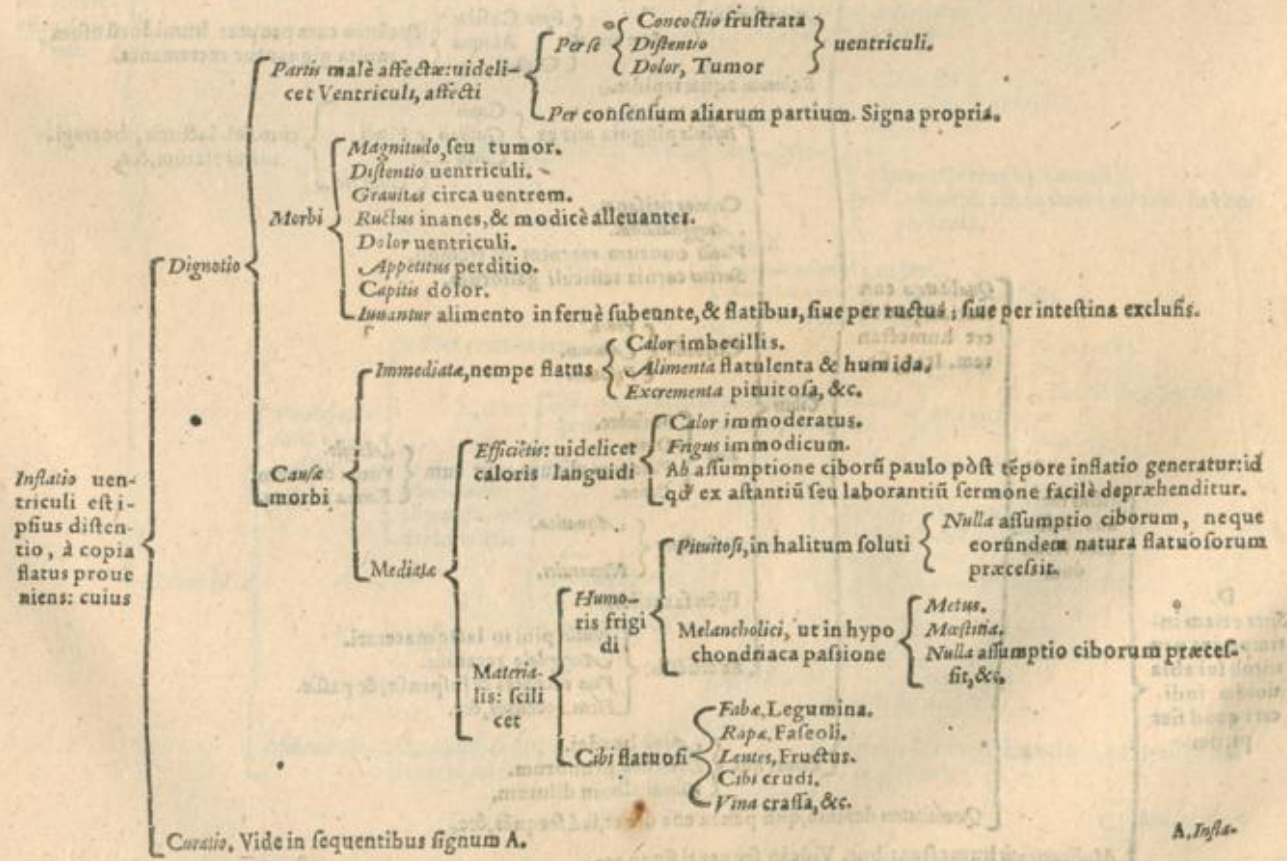 Inflatio uen-
triculi est i-
psius disten-
tio, à copia
flatus proue
niens: cuius
Dignotio
Partis malè affectæ: uideli-
cet Ventriculi, affecti
Per se
Concoctio frustrata
Distentio
Dolor, Tumor
uentriculi.
Per consensum aliarum partium. Signa propria.
Morbi
Magnitudo, seu tumor.
Distentio uentriculi.
Grauitas circa uentrem.
Ructus inanes, & modicè alleuantes.
Dolor uentriculi.
Appetitus perditio.
Capitis dolor.
Iuuantur alimento inferuè subeunte, & flatibus, siue per ructus; siue per intestina exclusis.
Causæ
morbi
Immediatæ, nempe flatus
Calor imbecillis.
Alimenta flatulenta & humida.
Excrementa pituitosa, &c.
Mediatæ
Efficiētis: uidelicet
caloris languidi
Calor immoderatus.
Frigus immodicum.
Ab assumptione ciborū paulo pòst tēpore inflatio generatur: id
qđ ex astantiū seu laborantiū sermone facilè depræhenditur.
Materia-
lis: scili
cet
Humo-
ris frigi
di
Pituitosi, in halitum soluti
Nulla assumptio ciborum, neque
eorundem natura flatuosorum
præcessit.
Melancholici, ut in hypo
chondriaca passione
Metus.
Mœstitia.
Nulla assumptio ciborum præces-
sit, &c.
Cibi flatuosi
Fabæ, Legumina.
Rapæ, Faseoli.
Lentes, Fructus.
Cibi crudi.
Vina crassa, &c.
Curatio. Vide in sequentibus signum A.
A. Infla-